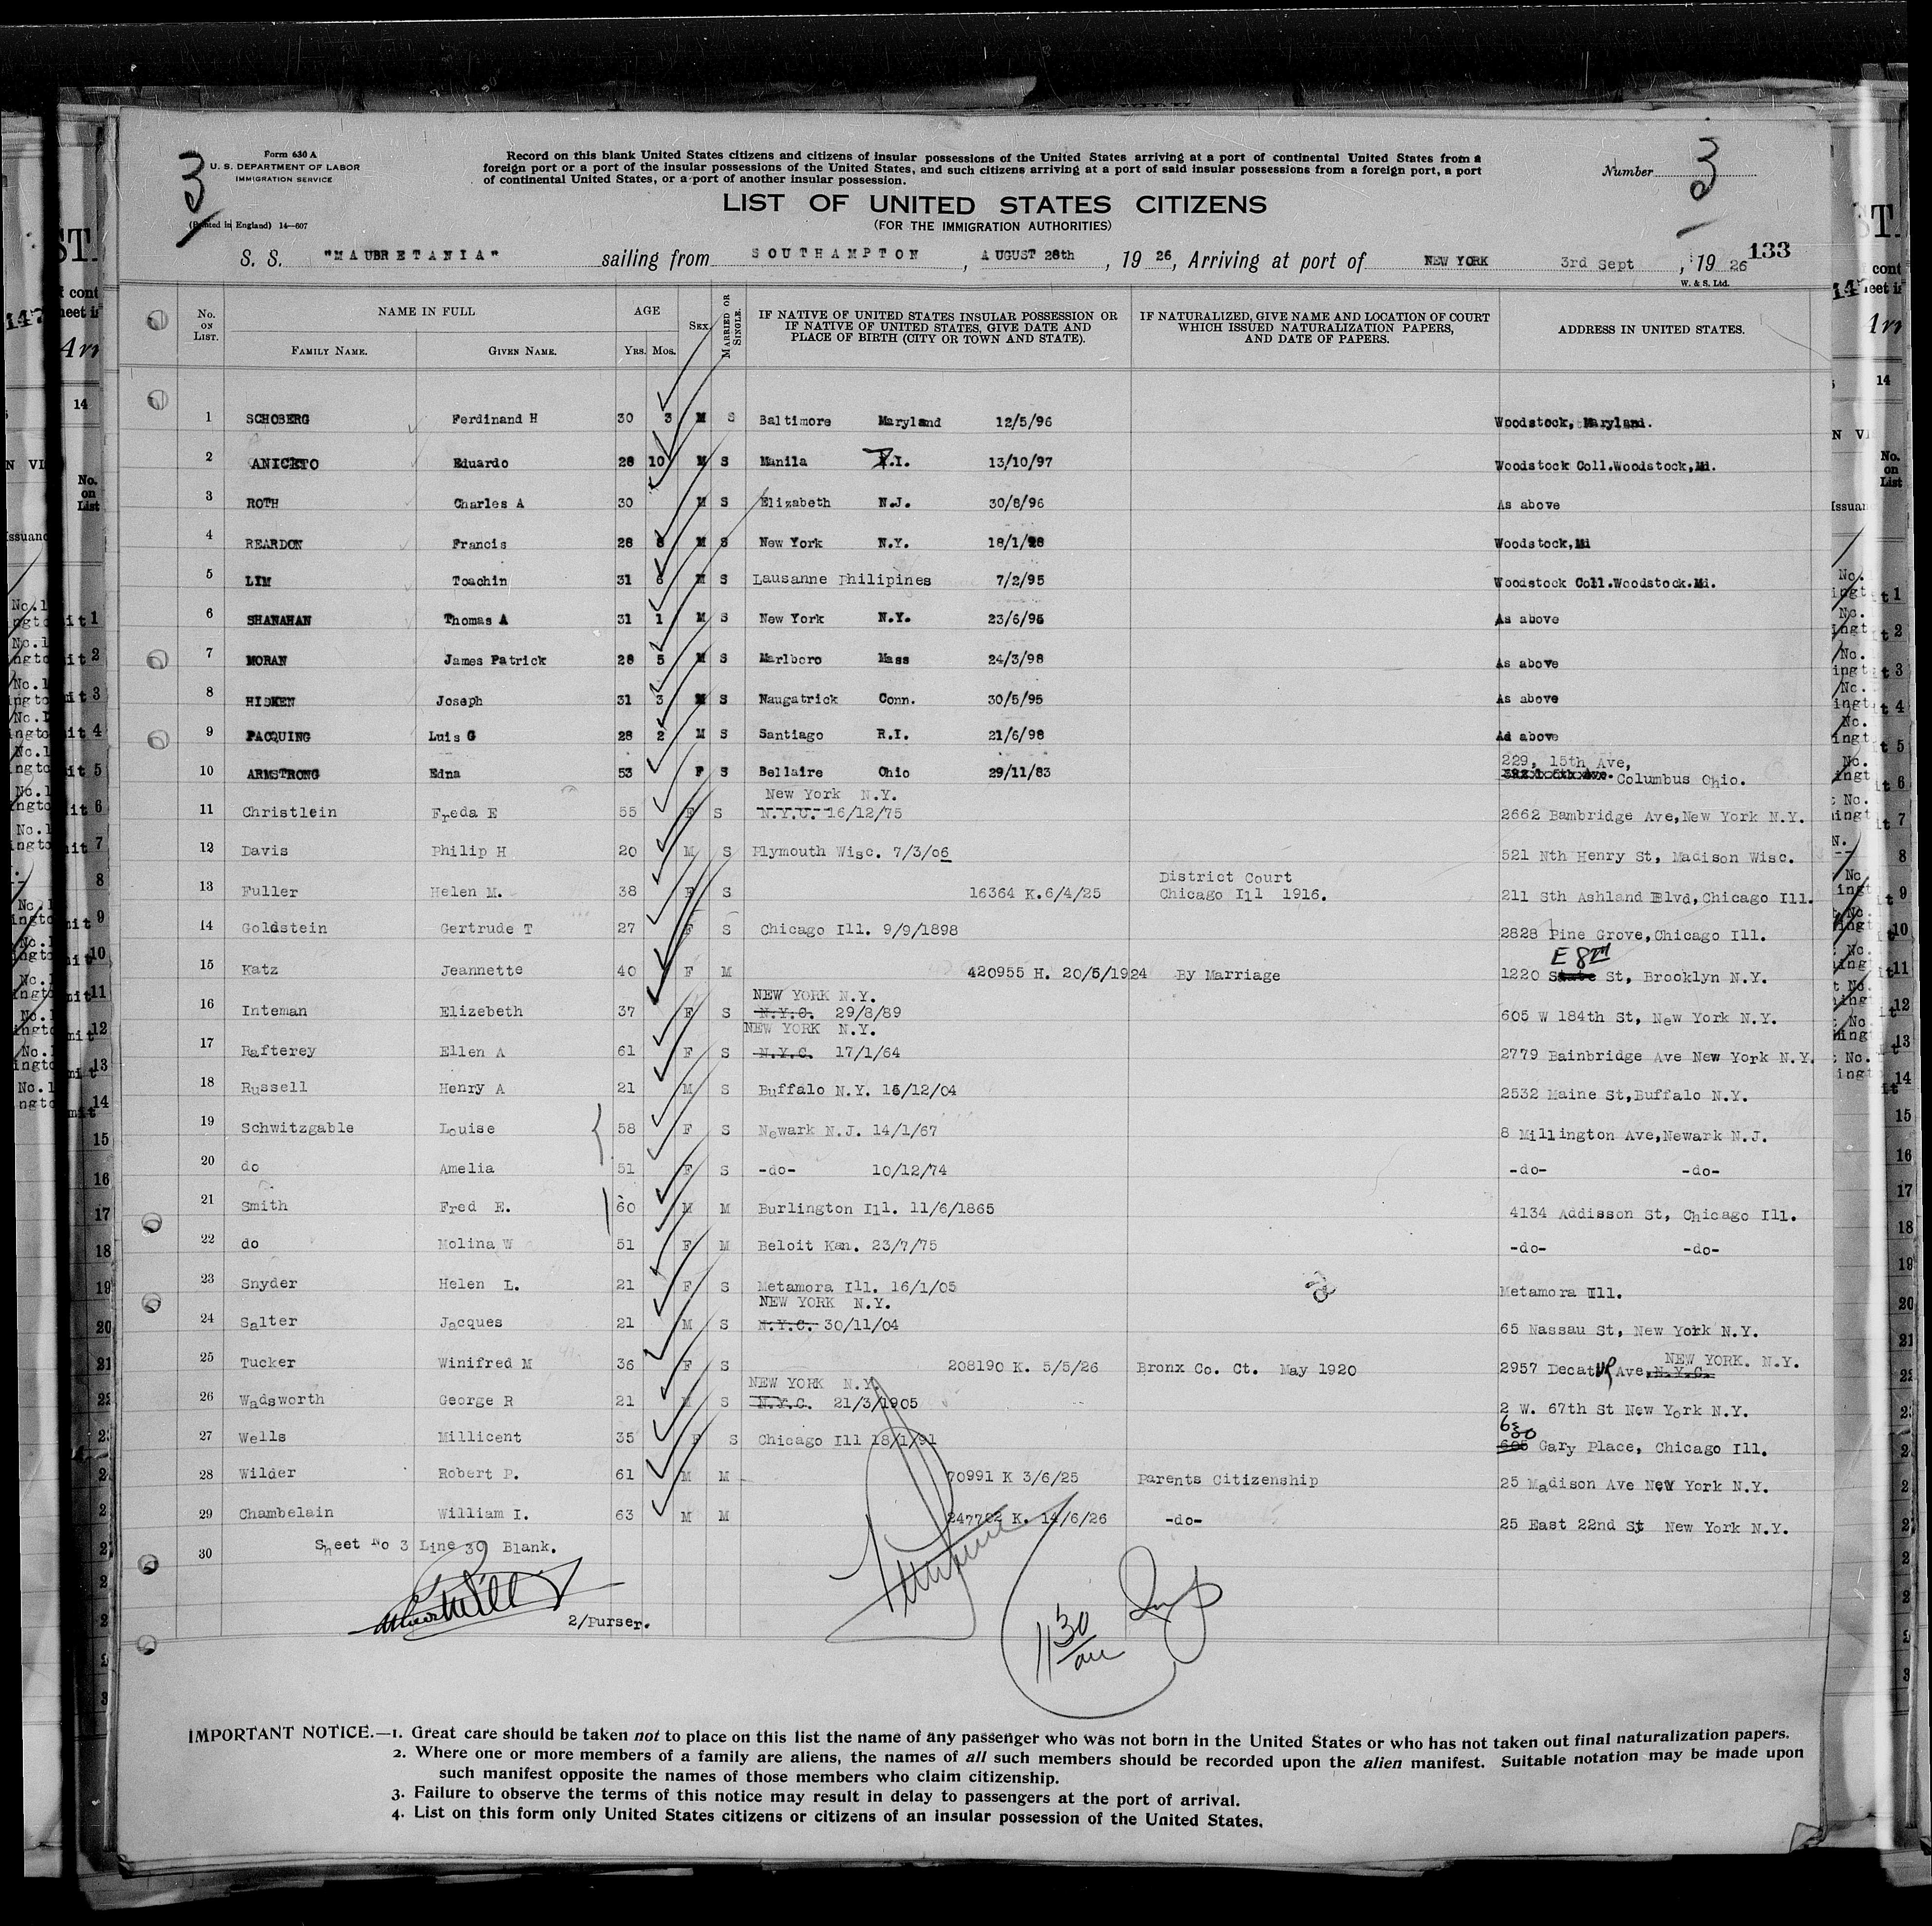 3
Form 630 A
U. S. DEPARTMENT OF LABOR
IMMIGRATION SERVICE
(Printed in England) 14—607
Record on this blank United States citizens and citizens of insular possessions of the United States arriving at a port of continental United States from a
foreign port or a port of the insular possessions of the United States, and such citizens arriving at a port of said insular possessions from a foreign port, a port
of continental United States, or a port of another insular possession.
Number 3
LIST OF UNITED STATES CITIZENS
(FOR THE IMMIGRATION AUTHORITIES)
S. S. "MAUBRETANIA" sailing from SOUTHAMPTON, AUGUST 28th, 19 26, Arriving at port of NEW YORK 3rd Sept, 19 26
133
W. & S. Ltd.
No. ON LIST. NAME IN FULL AGE SEX. MARRIED OR SINGLE. IF NATIVE OF UNITED STATES INSULAR POSSESSION OR IF NATIVE OF UNITED STATES, GIVE DATE AND PLACE OF BIRTH (CITY OR TOWN AND STATE). IF NATURALIZED, GIVE NAME AND LOCATION OF COURT WHICH ISSUED NATURALIZATION PAPERS, AND DATE OF PAPERS. ADDRESS IN UNITED STATES.
FAMILY NAME. GIVEN NAME. YRS. MOS.
1 SCHOBERG Ferdinand H 30 3 M S Baltimore Maryland 12/5/96 Woodstock, Maryland.
2 ANICETO Eduardo 28 10 M S Manila P.I. 13/10/97 Woodstock Coll.Woodstock,Md.
3 ROTH Charles A 30 M S Elizabeth N.J. 30/8/96 As above
4 REARDON Francis 28 8 M S New York N.Y. 18/1/98 Woodstock,Md
5 LIM Toachin 31 6 M S Lausanne Philipines 7/2/95 Woodstock Coll.Woodstock.Md.
6 SHANAHAN Thomas A 31 1 M S New York N.Y. 23/6/95 As above
7 MORAN James Patrick 28 5 M S Marlboro Mass 24/3/98 As above
8 HISKEN Joseph 31 3 M S Naugatrick Conn. 30/5/95 As above
9 PACQUING Luis G 28 2 M S Santiago R.I. 21/6/98 Ad above
229, 15th Ave,
10 ARMSTRONG Edna 53 F S Bellaire Ohio 29/11/83 Columbus Ohio.
New York N.Y.
11 Christlein Freda E 55 F S N.Y.U. 16/12/75 2662 Bambridge Ave,New York N.Y.
12 Davis Philip H 20 M S Plymouth Wisc. 7/3/06 521 Nth Henry St, Madison Wisc.
District Court
13 Fuller Helen M. 38 F S 16364 K.6/4/25 Chicago Ill 1916. 211 Sth Ashland Blvd,Chicago Ill.
14 Goldstein Gertrude T 27 F S Chicago Ill. 9/9/1898 2828 Pine Grove,Chicago Ill.
E 8th
15 Katz Jeannette 40 F M 420955 H. 20/5/1924 By Marriage 1220 State St, Brooklyn N.Y.
NEW YORK N.Y.
16 Inteman Elizebeth 37 F S N.Y.C. 29/8/89 605 W 184th St, New York N.Y.
NEW YORK N.Y.
17 Rafterey Ellen A 61 F S N.Y.C. 17/1/64 2779 Bainbridge Ave New York N.Y.
18 Russell Henry A 21 M S Buffalo N.Y. 16/12/04 2532 Maine St,Buffalo N.Y.
19 Schwitzgable Louise 58 F S Newark N.J. 14/1/67 8 Millington Ave,Newark N.J.
20 do Amelia 51 F S -do- 10/12/74 -do- -do-
21 Smith Fred E. 60 M M Burlington Ill. 11/6/1865 4134 Addisson St, Chicago Ill.
22 do Molina W 51 F M Beloit Kan. 23/7/75 -do- -do-
23 Snyder Helen L. 21 F S Metamora Ill. 16/1/05 Metamora Ill.
NEW YORK N.Y.
24 Salter Jacques 21 M S N.Y.C. 30/11/04 65 Nassau St, New York N.Y.
NEW YORK. N.Y.
25 Tucker Winifred M 36 F S 208190 K. 5/5/26 Bronx Co. Ct. May 1920 2957 Decatur Ave, N.Y.C.
NEW YORK N.Y.
26 Wadsworth George R 21 M S N.Y.C. 21/3/1905 2 W. 67th St New York N.Y.
27 Wells Millicent 35 F S Chicago Ill 18/1/91 605 630 Gary Place, Chicago Ill.
28 Wilder Robert P. 61 M M 70991 K 3/6/25 Parents Citizenship 25 Madison Ave New York N.Y.
29 Chambelain William I. 63 M M 247702 K. 14/6/26 -do- 25 East 22nd St New York N.Y.
30 Sheet No 3 Line 30 Blank.
2/Purser.
11 30 am
IMPORTANT NOTICE.—1. Great care should be taken not to place on this list the name of any passenger who was not born in the United States or who has not taken out final naturalization papers.
2. Where one or more members of a family are aliens, the names of all such members should be recorded upon the alien manifest. Suitable notation may be made upon
such manifest opposite the names of those members who claim citizenship.
3. Failure to observe the terms of this notice may result in delay to passengers at the port of arrival.
4. List on this form only United States citizens or citizens of an insular possession of the United States.